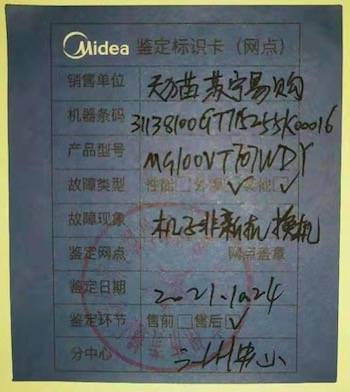 Midea 鉴定标识卡（网点）
销售单位 天猫苏宁易购
机器条码 31138100GT715255K00016
产品型号 MG100VT707WDY
故障类型 性能□外观☑其他☑
故障现象 机子非新机 换机
鉴定网点 网点盖章
鉴定日期 2021.10.24
鉴定环节 售前□售后☑
分中心